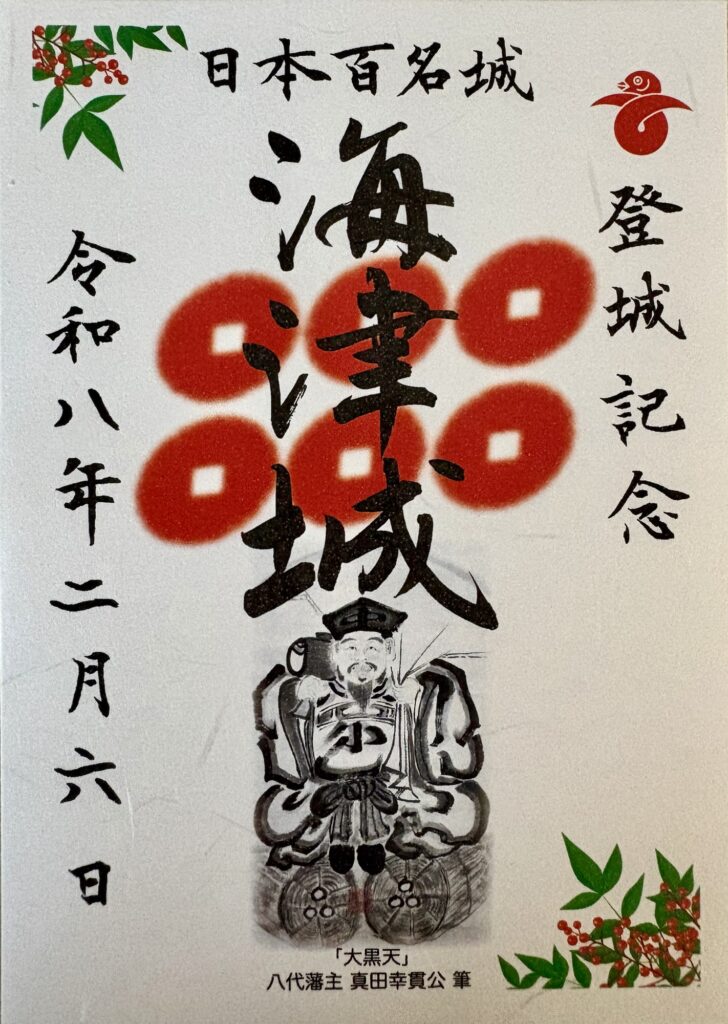 日本百名城
登城記念
海津城
令和八年二月六日
「大黒天」
八代藩主 真田幸貫公 筆